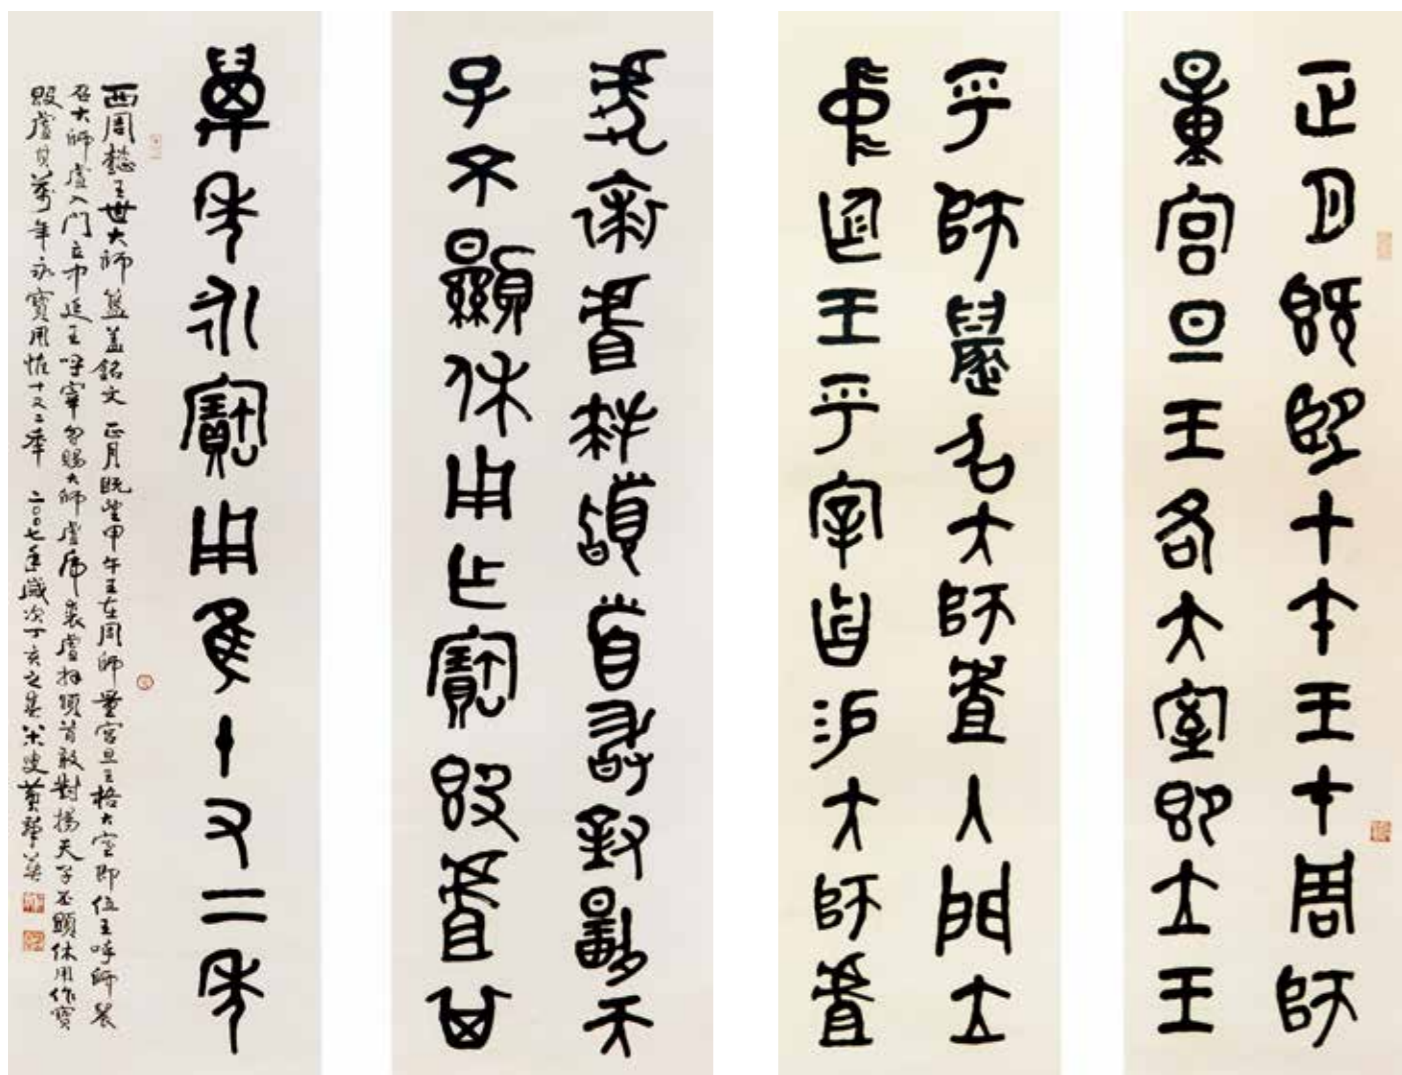 正月既望甲午王才周師
量宮旦王各大室即立王
乎師晨召大師虘入門立
中廷王乎宰曶易大師虘
虎裘虘拜𩒨首敢對揚天
子不顯休用乍寶𣪘虘其
萬年永寶用隹十又二年
西周懿王世大師簋蓋銘文 正月既望甲午王在周師量宮旦王格大室即位王呼師晨
召大師虘入門立中廷王呼宰曶賜大師虘虎裘虘拜頴首敢對揚天子丕顯休用作寶
𣪘虘其萬年永寶用惟十又二年 二〇〇七年歲次丁亥之